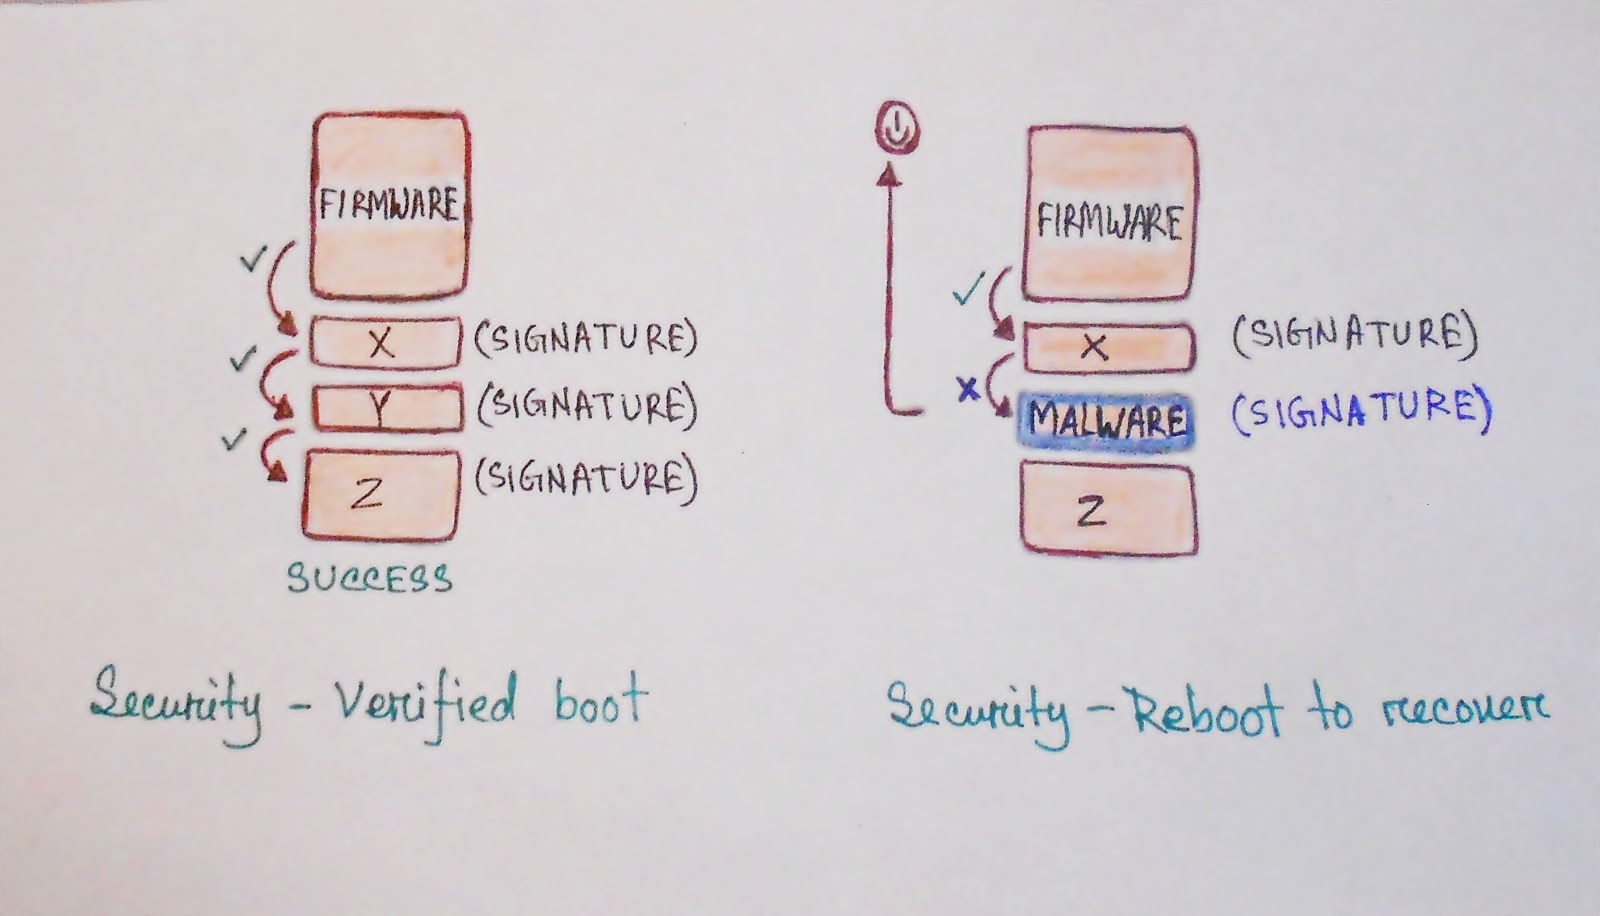 FIRMWARE
X (SIGNATURE)
Y (SIGNATURE)
Z (SIGNATURE)
SUCCESS
Security - Verified boot
FIRMWARE
X (SIGNATURE)
MALWARE (SIGNATURE)
Z
Security - Reboot to recover